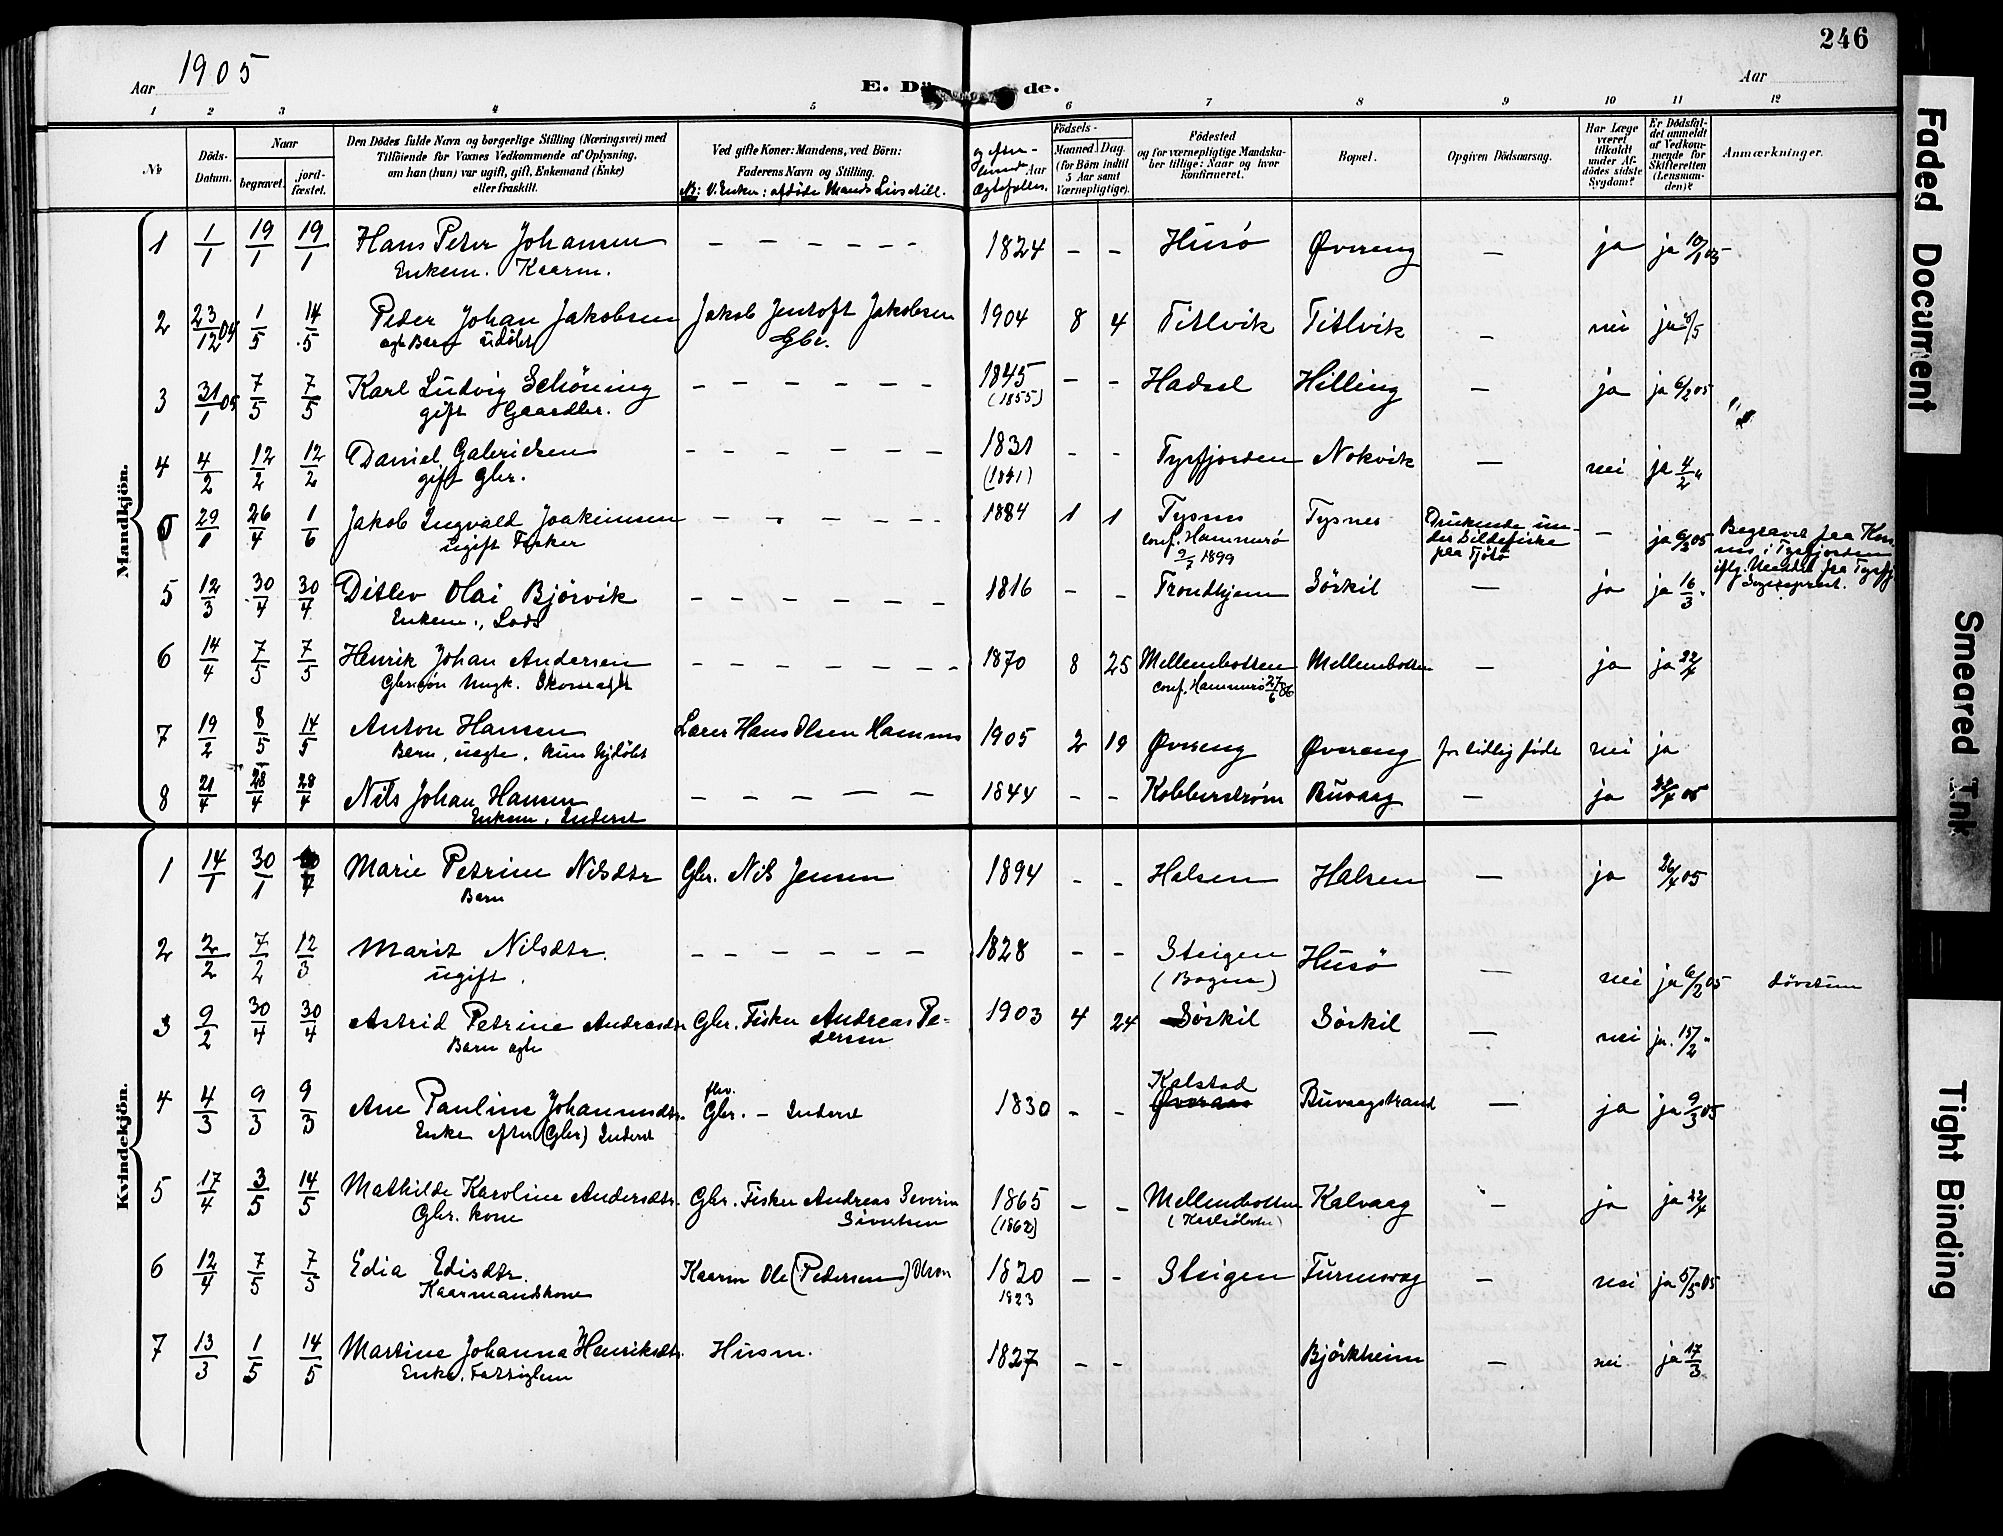 246
Aar 1905
E. Dö de.
Aar
1 2 3 4 5 6 7 8 9 10 11 12
Nr
Döds-Datum.
Naar
begravet.
jord-fæstet.
Den Dödes fulde Navn og borgerlige Stilling (Næringsvei) med
Tilföiende for Voxnes Vedkommende af Oplysning,
om han (hun) var ugift, gift, Enkemand (Enke)
eller fraskilt.
Ved gifte Koner: Mandens, ved Börn:
Faderens Navn og Stilling.
NB: V. Enker: afdöde Mands Livsstill.
Aar
Födsels-
Maaned Dag
(for Börn indtil
5 Aar samt
Værnepligtige).
Födested
og for værnepligtige Mandska-
ber tillige: Naar og hvor
konfirmeret.
Bopæl.
Opgiven Dödsaarsag.
Har Læge
været
tilkaldt
under Af-
dödes sidste
Sygdom?
Er Dödsfal-
det anmeldt
af Vedkom-
mende for
Skifteretten
(Lensman-
den)?
Anmærkninger.
Mandkjön.
1 1/1 19/1 19/1 Hans Peter Johansen – – – – – – 1824 – – Husø Øvereng — ja ja 10/1 05
Enkem. Kaarm.
2 23/12 04 1/5 14/5 Peder Johan Jakobsen Jakob Jentoft Jakobsen 1904 8 4 Titlvik Titlvik – nei ja /5
ægte Barn udöbt Gbr.
3 31/1 05 7/5 7/5 Karl Ludvig Schöning – – – – – – 1845 – – Hadsel Hilling – ja ja 6/2 05
gift Gaardbr. (1855)
4 4/2 12/2 12/2 Daniel Gabrielsen – – – – – – 1831 – – Tysfjorden Nokvik — nei ja 4/2 "
gift Gbr.
5 29/1 26/4 1/6 Jakob Ingvald Joakimsen – – – – – – 1884 1 1 Tysnes Tysnes Druknede un- – ja 6/3 05 Begravet fra
ugift Fisker conf. Hammerø der Sildefiske i Tysfjorden
2/7 1899 paa Tjötö iflg. Meddel. fra Tysfj.
Sogneprest.
5 12/3 30/4 30/4 Ditlev Olai Bjørvik – – – – – – 1816 – – Trondhjem Sörkil — ja ja 16/3 "
Enkem., Lods
6 14/4 7/5 7/5 Henrik Johan Andersen – – – – – – – 1870 8 25 Mellembotten Mellembotten – ja ja 22/4
Gbr.sön Ungk. conf. Hammerø 27/6 86
7 19/2 8/5 14/5 Anton Hansen Lærer Hans Olsen Hamnes 1905 2 19 Øvereng Øvereng for tidlig födt nei ja
Barn, uægte, kun hjdöbt
8 21/4 28/4 28/4 Nils Johan Hansen – – – – – 1844 – – Kobberström Buvaag — ja 22/4 05
Enkem, Inderst
Kvindekjön.
1 14/1 30/1 Marie Petrine Nilsdtr Gbr. Nils Jensen 1894 – – Halsen Halsen — ja 26/4 05
Barn
2 2/2 7/2 12/3 Marit Nilsdtr. – – – – – – 1828 – – Steigen Husø — nei ja 6/2 05 dövstum
ugift. (Bogen)
3 9/2 30/4 30/4 Astrid Petrine Andreasdtr Gbr. Fisker Andreas Pe- 1903 4 24 Sörkil Sörkil — nei ja. 15/2 "
Barn ægte dersen
4 4/3 9/3 9/3 Ane Pauline Johannesdtr. Gbr. – Inderst 1830 – – Kalstad Buvaagstrand — ja ja 9/3 05
Enke efter (Gbr) Inderst
5 17/4 3/5 14/5 Mathilde Karoline Andersdtr. Gbr. Fisker Andreas Severin 1865 – – Mellembotten Kalvaag – ja ja 22/4
Gbr. kone Sivertsen (1862)
6 12/4 7/5 7/5 Edia Edisdtr. Kaarm Ole (Pedersen) Olsen 1820 – – Steigen – nei ja 6/5 05
Kaarmandskone 1823
7 13/3 1/5 14/5 Martine Johanna Henriksdtr. Husm. 1827 – – Björkheim – nei ja 17/3
Enke. Fattiglem
Faded Document
Smeared Ink
Tight Binding